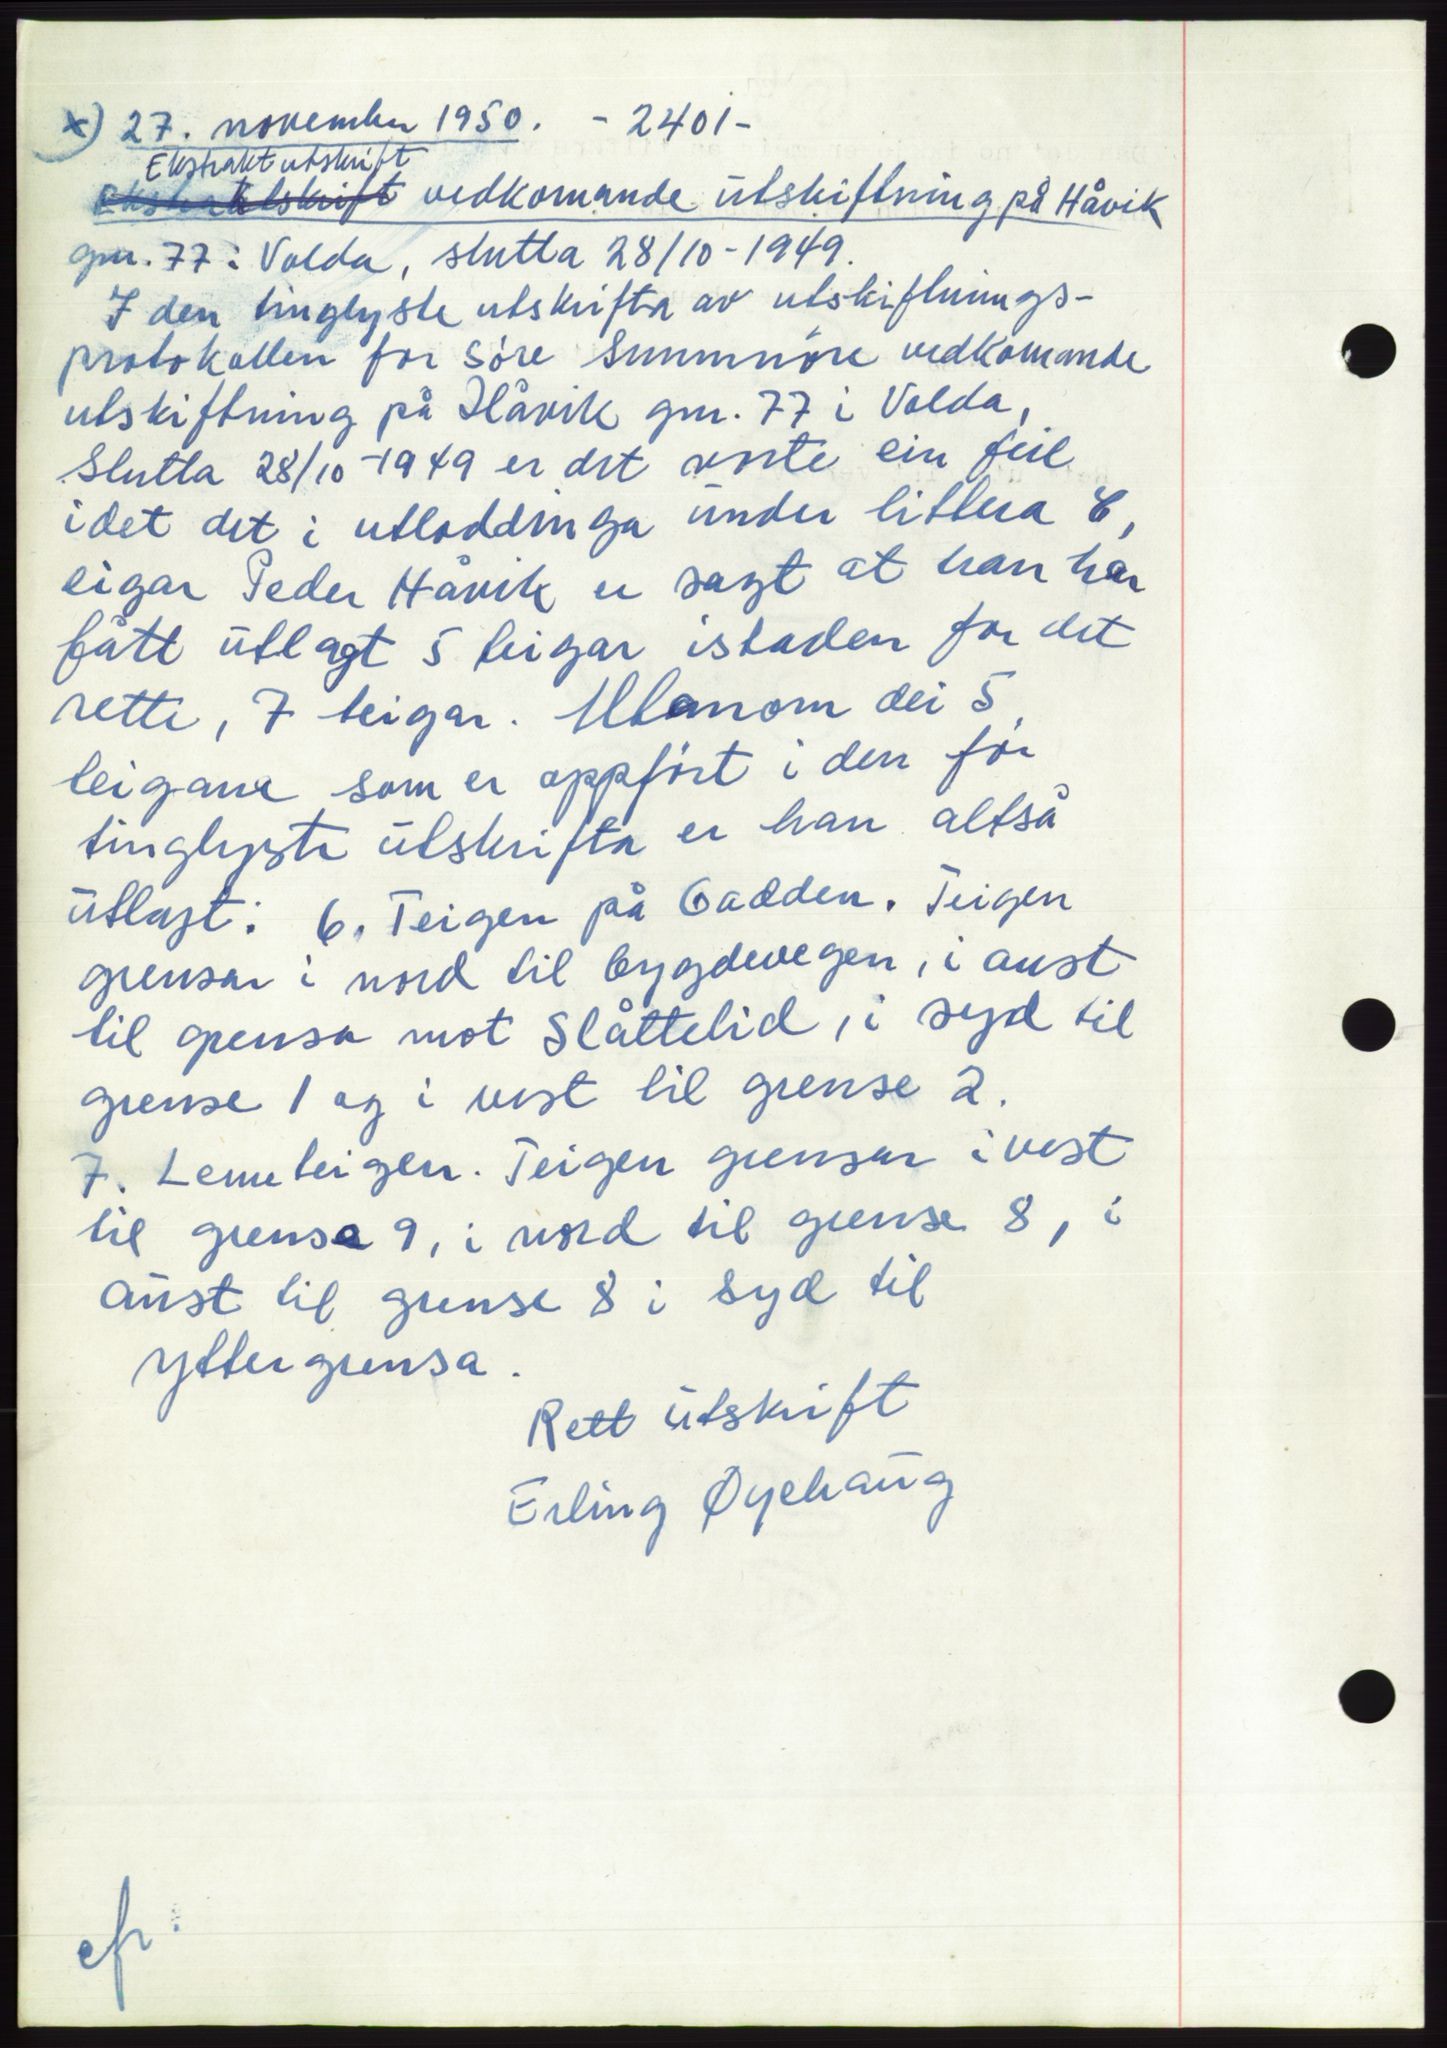 x) 27. november 1950. - 2401 -
Ekstraktutskrift
vedkomande utskiftning på Håvik
gnr. 77 i Volda, slutta 28/10-1949.
I den tinglyste utskrifta av utskiftnings-
protokollen for Søre Sunnmøre vedkomande
utskiftning på Håvik gnr. 77 i Volda,
slutta 28/10-1949 er det vorte ein feil
idet det i utloddinga under littera C,
eigar Peder Håvik er sagt at han har
fått utlagt 5 teigar istaden for det
rette, 7 teigar. Utanom dei 5
teigane som er oppført i den før
tinglyste utskrifta er han altså
utlagt: 6. Teigen på Gadden. Teigen
grensar i nord til bygdevegen, i aust
til grensa mot Slåttelid, i syd til
grense 1 og i vest til grense 2.
7. Lemeteigen. Teigen grensar i vest
til grense 9, i nord til grense 8, i
aust til grense 8 i syd til
yttergrensa.
Rett utskrift
Erling Øyehaug